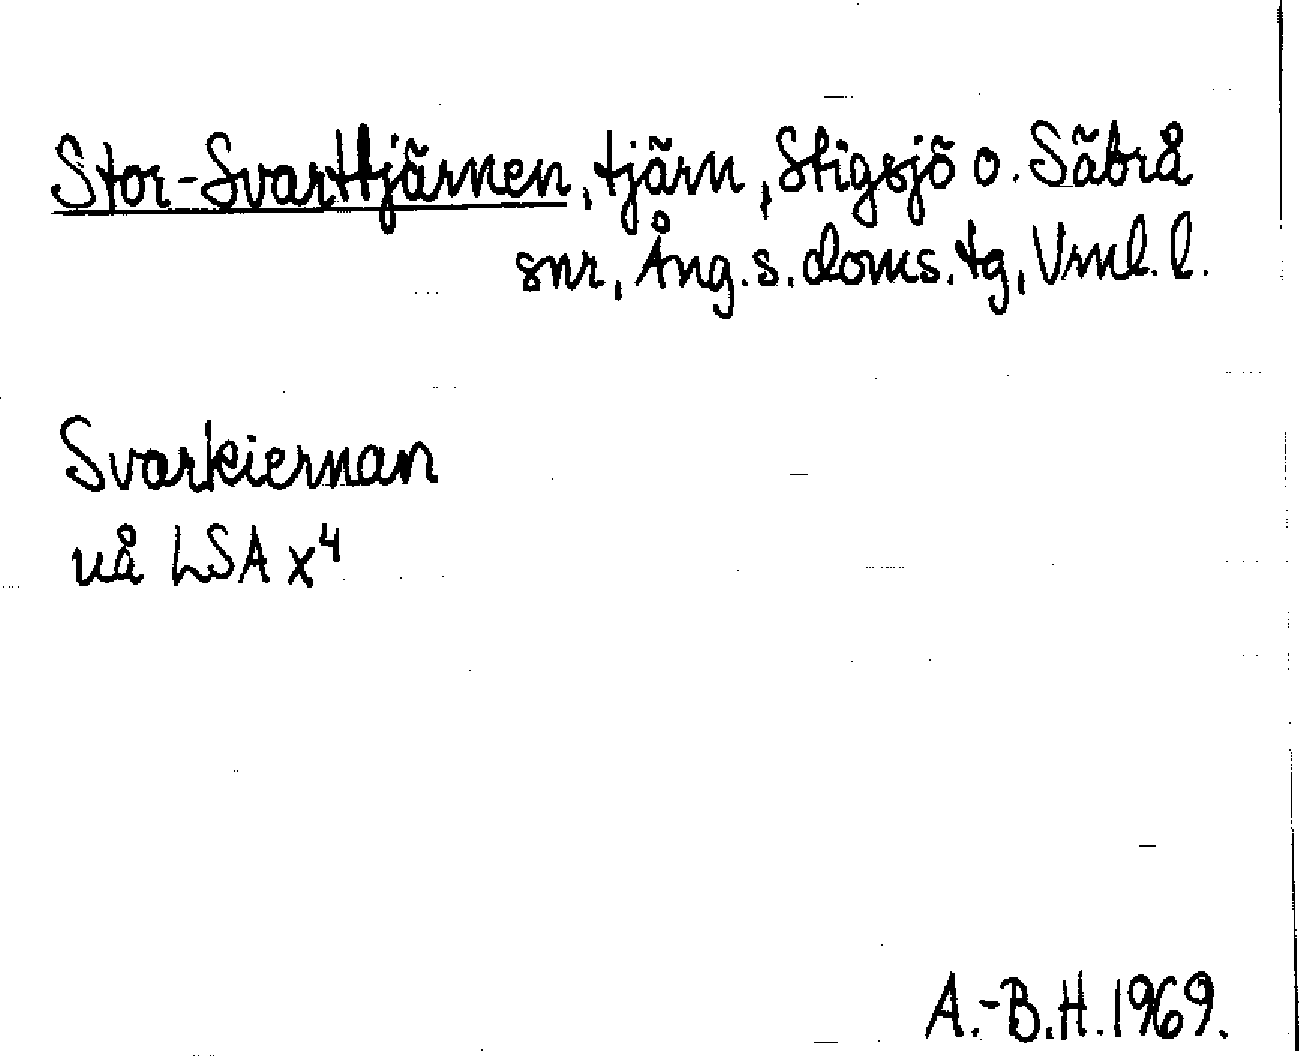 Stor-Svarttjärnen, tjärn, Stigsjö o. Säbrå
snr, Ång. s. doms. tg, Vrnl. l.
Svarkiernan
uå LSA x⁴
A.-B.H. 1969.